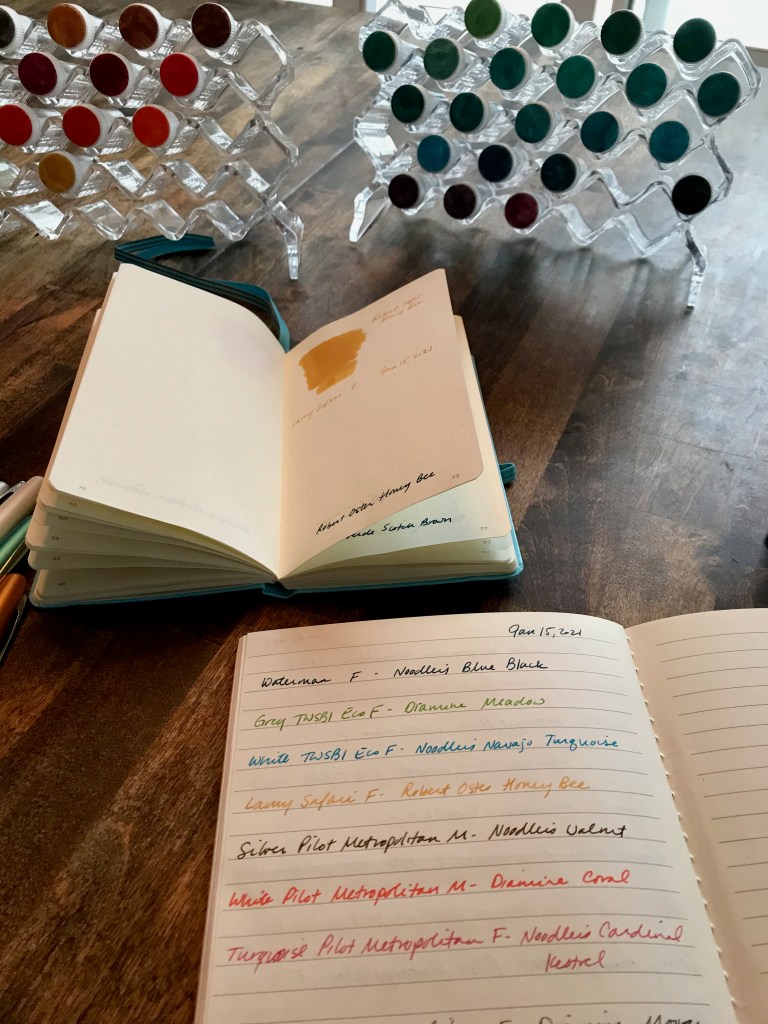 Robert Oster
Honey Bee
Jan 15, 2021
Lamy Safari F
Robert Oster Honey Bee
Scotch Brown
Jan 15, 2021
Waterman F - Noodler's Blue Black
Grey TWSBI Eco F - Diamine Meadow
White TWSBI Eco F - Noodler's Navajo Turquoise
Lamy Safari F - Robert Oster Honey Bee
Silver Pilot Metropolitan M - Noodler's Walnut
White Pilot Metropolitan M - Diamine Coral
Turquoise Pilot Metropolitan F - Noodler's Cardinal
Kestrel
F - Diamine